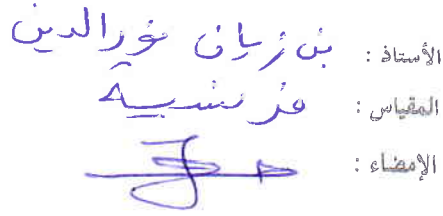 الأستاذ : بن زيان نورالدين
المقياس : فرنسية
الإمضاء :